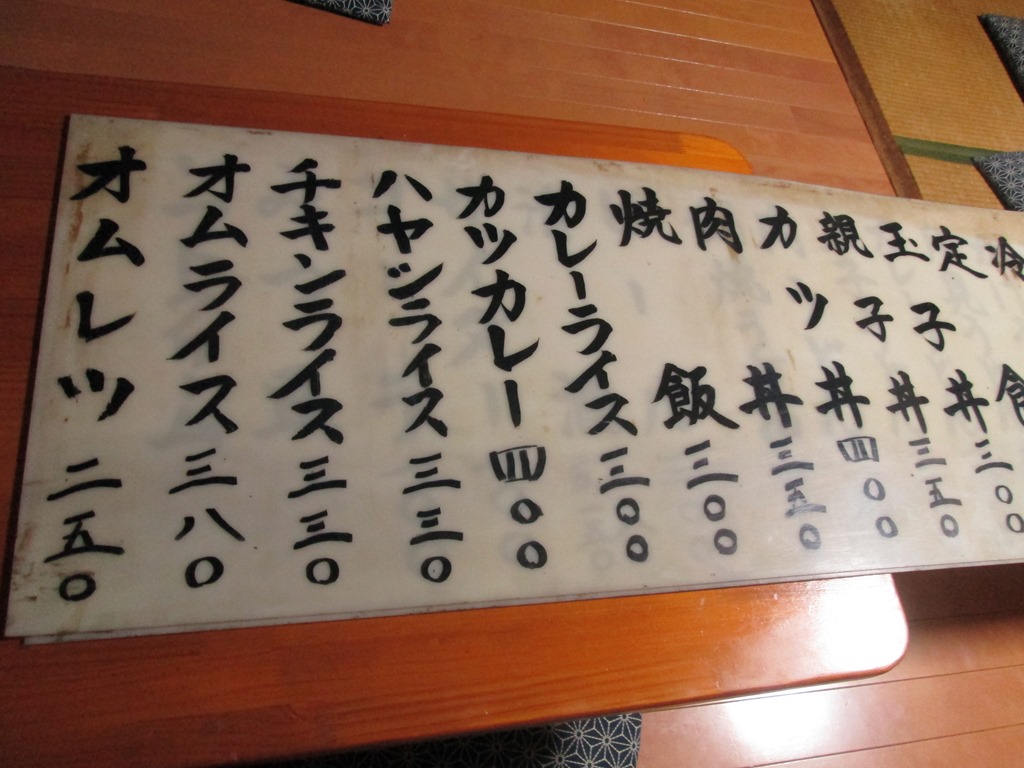 冷
定食
玉子丼三〇〇
親子丼三五〇
カツ丼四〇〇
肉丼三五〇
焼飯三〇〇
カレーライス三〇〇
カツカレー四〇〇
ハヤシライス三三〇
チキンライス三三〇
オムライス三八〇
オムレツ二五〇